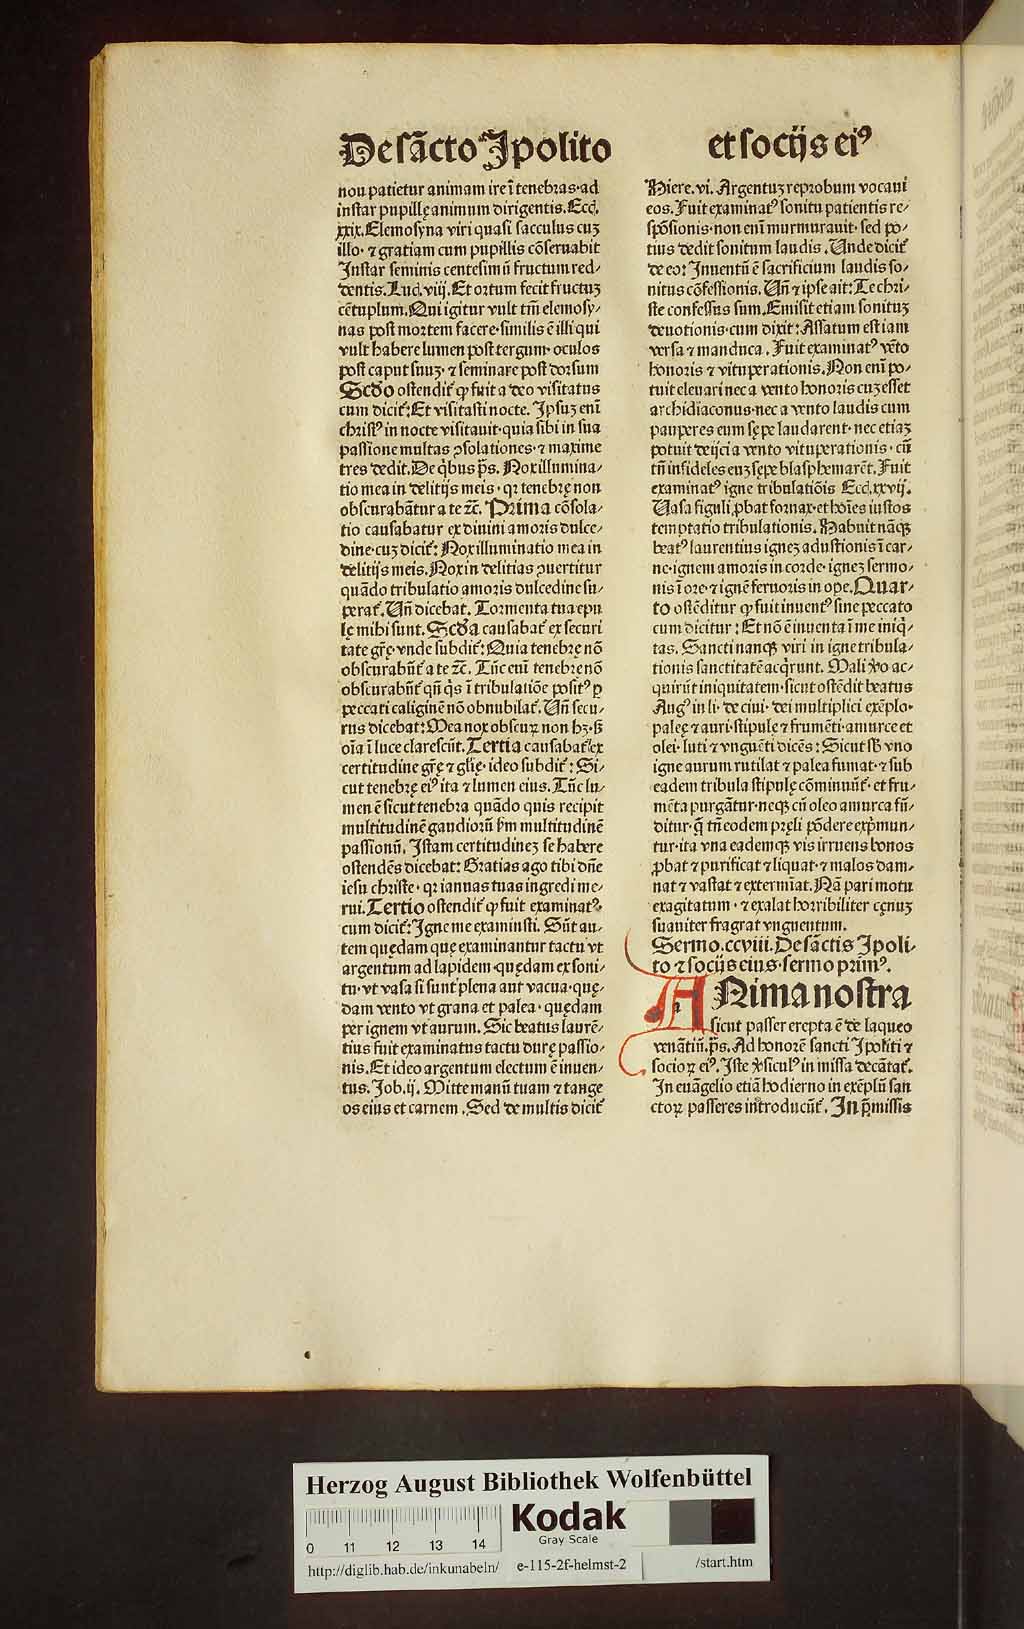 De sãcto Ipolito et socijs eiꝰ
nou patietur animam ire ĩ tenebras·ad
instar pupillę animum dirigentis. Eccĺ.
xxix. Elemosyna viri quasi sacculus cuꝫ
illo·⁊ gratiam cum pupillis cõseruabit
Instar seminis centesimũ fructum red⸗
dentis. Luc̃. viij. Et ortum fecit fructuꝫ
cẽtuplum. Qui igitur vult tm̃ elemosy⸗
nas post mortem facere·similis ẽ illi qui
vult habere lumen post tergum·oculos
post caput suuꝫ·⁊ seminare post dorsum
Scďo ostendit̃ ꝙ fuit a deo visitatus
cum dicit̃: Et visitasti nocte. Ipsuꝫ eni᷑
christꝰ in nocte visitauit·quia sibi in sua
passione multas ꝯsolationes·⁊ maxime
tres dedit. De q̃bus p̃s. Nox illumina⸗
tio mea in delitijs meis·qꝛ tenebrę non
obscurabãtur a te ⁊c̃. Prima cõsola⸗
tio causabatur ex diuini amoris dulce⸗
dine·cuꝫ dicit̃: Nox illuminatio mea in
delitijs meis. Nox in delitias ꝯuertitur
quãdo tribulatio amoris dulcedine su⸗
perat̃. Uñ dicebat. Tormenta tua epu
lę mihi sunt. Scďa causabat̃ ex securi
tate gr̃ę·vnde subdit̃: Quia tenebrę nõ
obscurabũt̃ a te ⁊c̃. Tũc eni᷑ tenebre nõ
obscurabũt̃ qñ q̃s ĩ tribulatiõe positꝰ ꝑ
peccati caliginẽ nõ obnubilat̃. Uñ secu⸗
rus dicebat: Mea nox obscuꝝ non hꝫ·sꝫ
oĩa ĩ luce clarescũt. Tertia causabat̃ ex
certitudine gr̃ę ⁊ glĩę·ideo subdit̃: Si⸗
cut tenebrę eiꝰ ita ⁊ lumen eius. Tũc lu⸗
men ẽ sicut tenebra quãdo quis recipit
multitudinẽ gaudiorũ ẜm multitudinẽ
passionũ. Istam certitudineꝫ se habere
ostendẽs dicebat: Gratias ago tibi dñe
iesu christe·qꝛ ianuas tuas ingredi me⸗
rui. Tertio ostendit̃ ꝙ fuit examinatꝰ·
cum dicit̃: Igne me examinsti. Sũt au⸗
tem quędam quę examinantur tactu vt
argentum ad lapidem·quędam ex soni⸗
tu·vt vasa si sunt plena aut vacua·quę⸗
dam vento vt grana et palea·quędam
per ignem vt aurum. Sic beatus laurẽ⸗
tius fuit examinatus tactu durę passio⸗
nis. Et ideo argentum electum ẽ inuen⸗
tus. Job. ij. Mitte manũ tuam ⁊ tange
os eius et carnem. Sed de multis dicit̃
Hiere. vi. Argentuꝫ reprobum vocaui
eos. Fuit examinatꝰ sonitu patientis re⸗
spõsionis·non eni᷑ murmurauit·sed po⸗
tius dedit sonitum laudis. Unde dicit̃
de eo: Inuentũ ẽ sacrificium laudis so⸗
nitus cõfessionis. Uñ ⁊ ipse ait: Te chri⸗
ste confessus sum. Emisit etiam sonituꝫ
deuotionis·cum dixit: Assatum est iam
versa ⁊ manduca. Fuit examinatꝰ vẽto
honoris ⁊ vituperationis. Non eni᷑ po⸗
tuit eleuari nec a vento honoris cuꝫ esset
archidiaconus·nec a vento laudis cum
pauperes eum sępe laudarent·nec etiaꝫ
potuit deijci a vento vituperationis·cũ
tñ infideles euꝫ sępe blasphemarẽt. Fuit
examinatꝰ igne tribulatiõis Eccĺ. xxvij.
Uasa figuli ꝓbat fornax·et hoĩes iustos
temptatio tribulationis. Habuit nãqꝫ
beatꝰ laurentius igneꝫ adustionis ĩ car⸗
ne·ignem amoris in corde·igneꝫ sermo⸗
nis ĩ ore·⁊ ignẽ feruoris in ope. Quar⸗
to ostẽditur ꝙ fuit inuentꝰ sine peccato
cum dicitur: Et nõ ẽ inuenta ĩ me iniq̃⸗
tas. Sancti nanqꝫ viri in igne tribula⸗
tionis sanctitatẽ acq̃runt. Mali ṽo ac⸗
quirũt iniquitatem·sicut ostẽdit beatus
Augꝰ in li. de ciui. dei multiplici exẽplo·
paleę ⁊ auri·stipulę ⁊ frumẽti·amurce et
olei·luti ⁊ vnguẽti dicẽs: Sicut sb̃ vno
igne aurum rutilat ⁊ palea fumat·⁊ sub
eadem tribula stipulę cõminuũt̃·et fru⸗
mẽta purgãtur·neqꝫ cũ oleo amurca fũ⸗
ditur·q̃ tñ eodem pręli põdere exp̃mun⸗
tur·ita vna eademqꝫ vis irruens bonos
ꝓbat ⁊ purificat ⁊ liquat·⁊ malos dam⸗
nat ⁊ vastat ⁊ extermĩat. Nã pari motu
exagitatum·⁊ exalat horribiliter cęnuꝫ
suauiter fragrat vnguentum.
Sermo. ccviii. De sãctis Ipoli⸗
to ⁊ socijs eius·sermo primꝰ.
ANima nostra
sicut passer erepta ẽ de laqueo
venãtiũ. p̃s. Ad honorẽ sancti Ipoliti ⁊
socioꝝ eiꝰ. Iste ṽsiculꝰ in missa decãtat̃.
In euãgelio etiã hodierno in exẽplũ san
ctoꝝ passeres introducũt̃. In p̃missis
Herzog August Bibliothek Wolfenbüttel
Kodak
Gray Scale
0 11 12 13 14
http://diglib.hab.de/inkunabeln/ e-115-2f-helmst-2 /start.htm